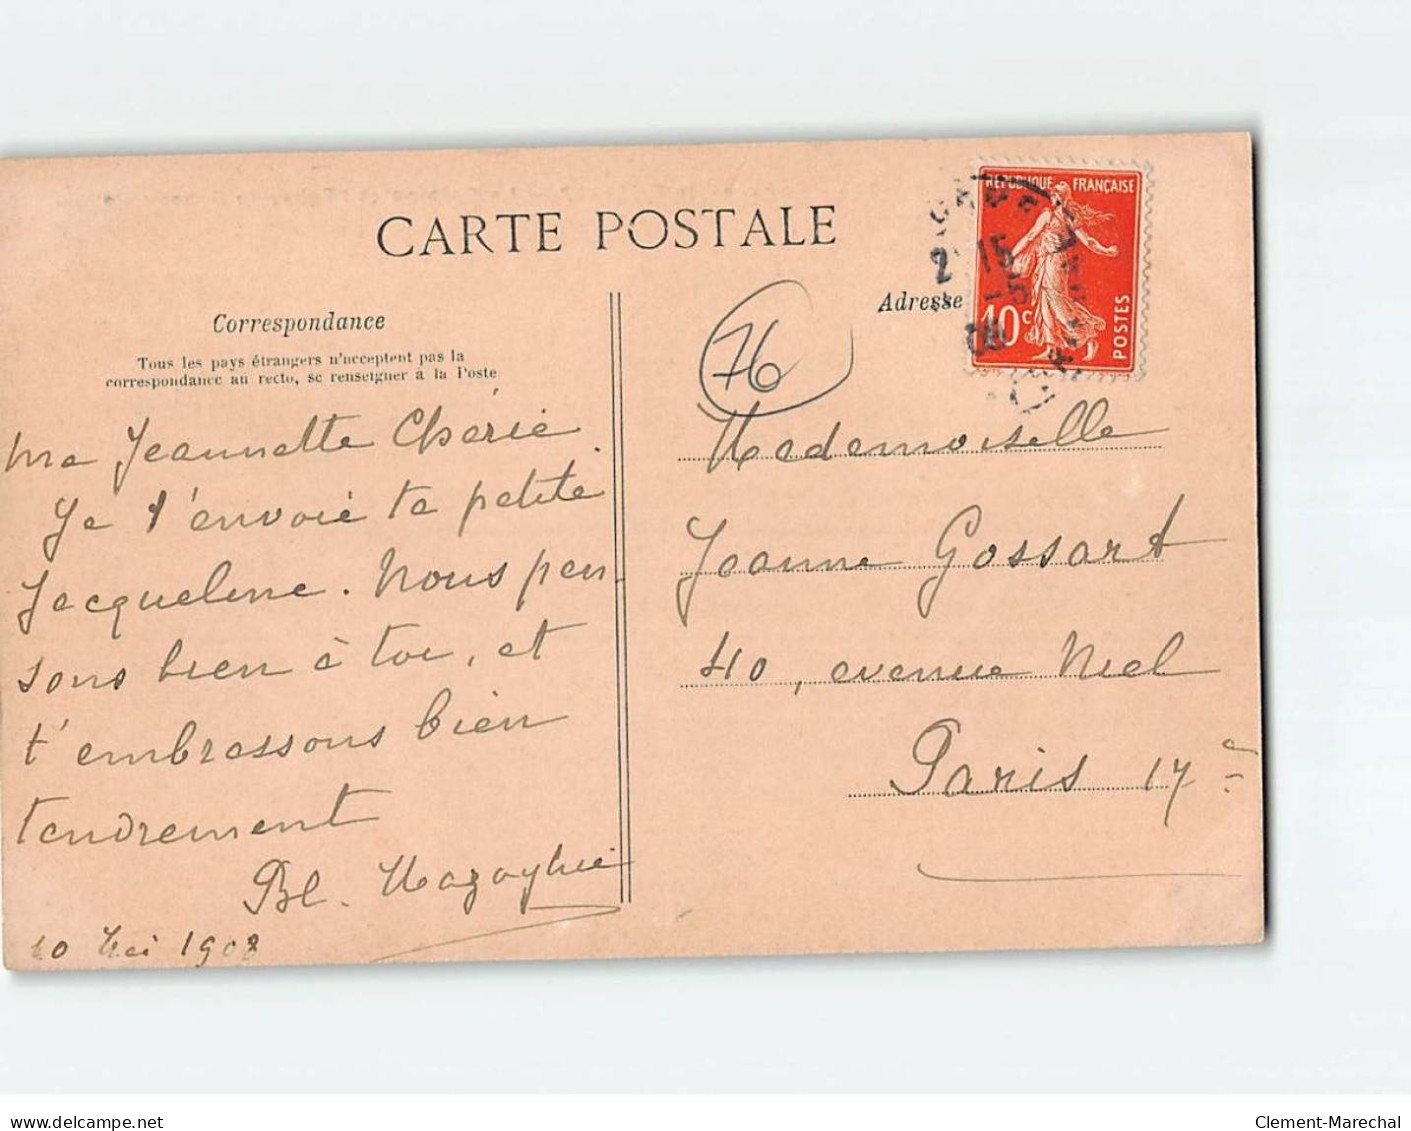 CARTE POSTALE
Correspondance
Tous les pays étrangers n'acceptent pas la
correspondance au recto, se renseigner à la Poste
Adresse
RÉPUBLIQUE FRANÇAISE
10c
POSTES
76
Ma Jeannette Chérie
Je t'envoie ta petite
Jacqueline. Nous pen-
sons bien à toi, et
t'embrassons bien
tendrement
Bl.
10 Mai 1908
Mademoiselle
Jeanne Gossart
40, avenue Niel
Paris 17e
delcampe.net
Clement-Marechal